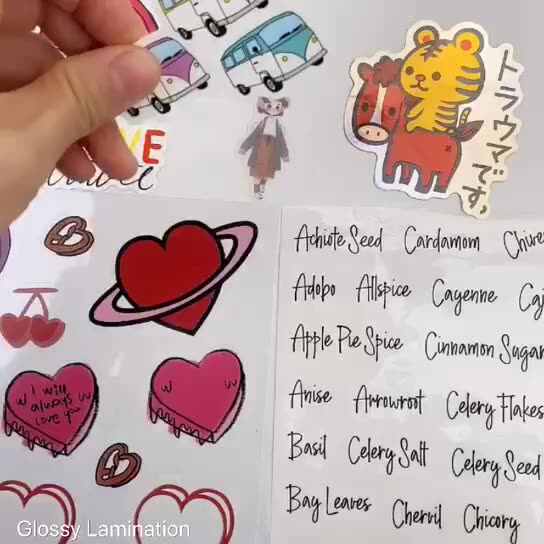 トラウマです。
VE
I will
always
love you
Achiote Seed Cardamom
Adobo Allspice Cayenne
Apple Pie Spice Cinnamon Sugar
Anise Arrowroot Celery Flakes
Basil Celery Salt Celery Seed
Bay Leaves Chervil Chicory
Glossy Lamination